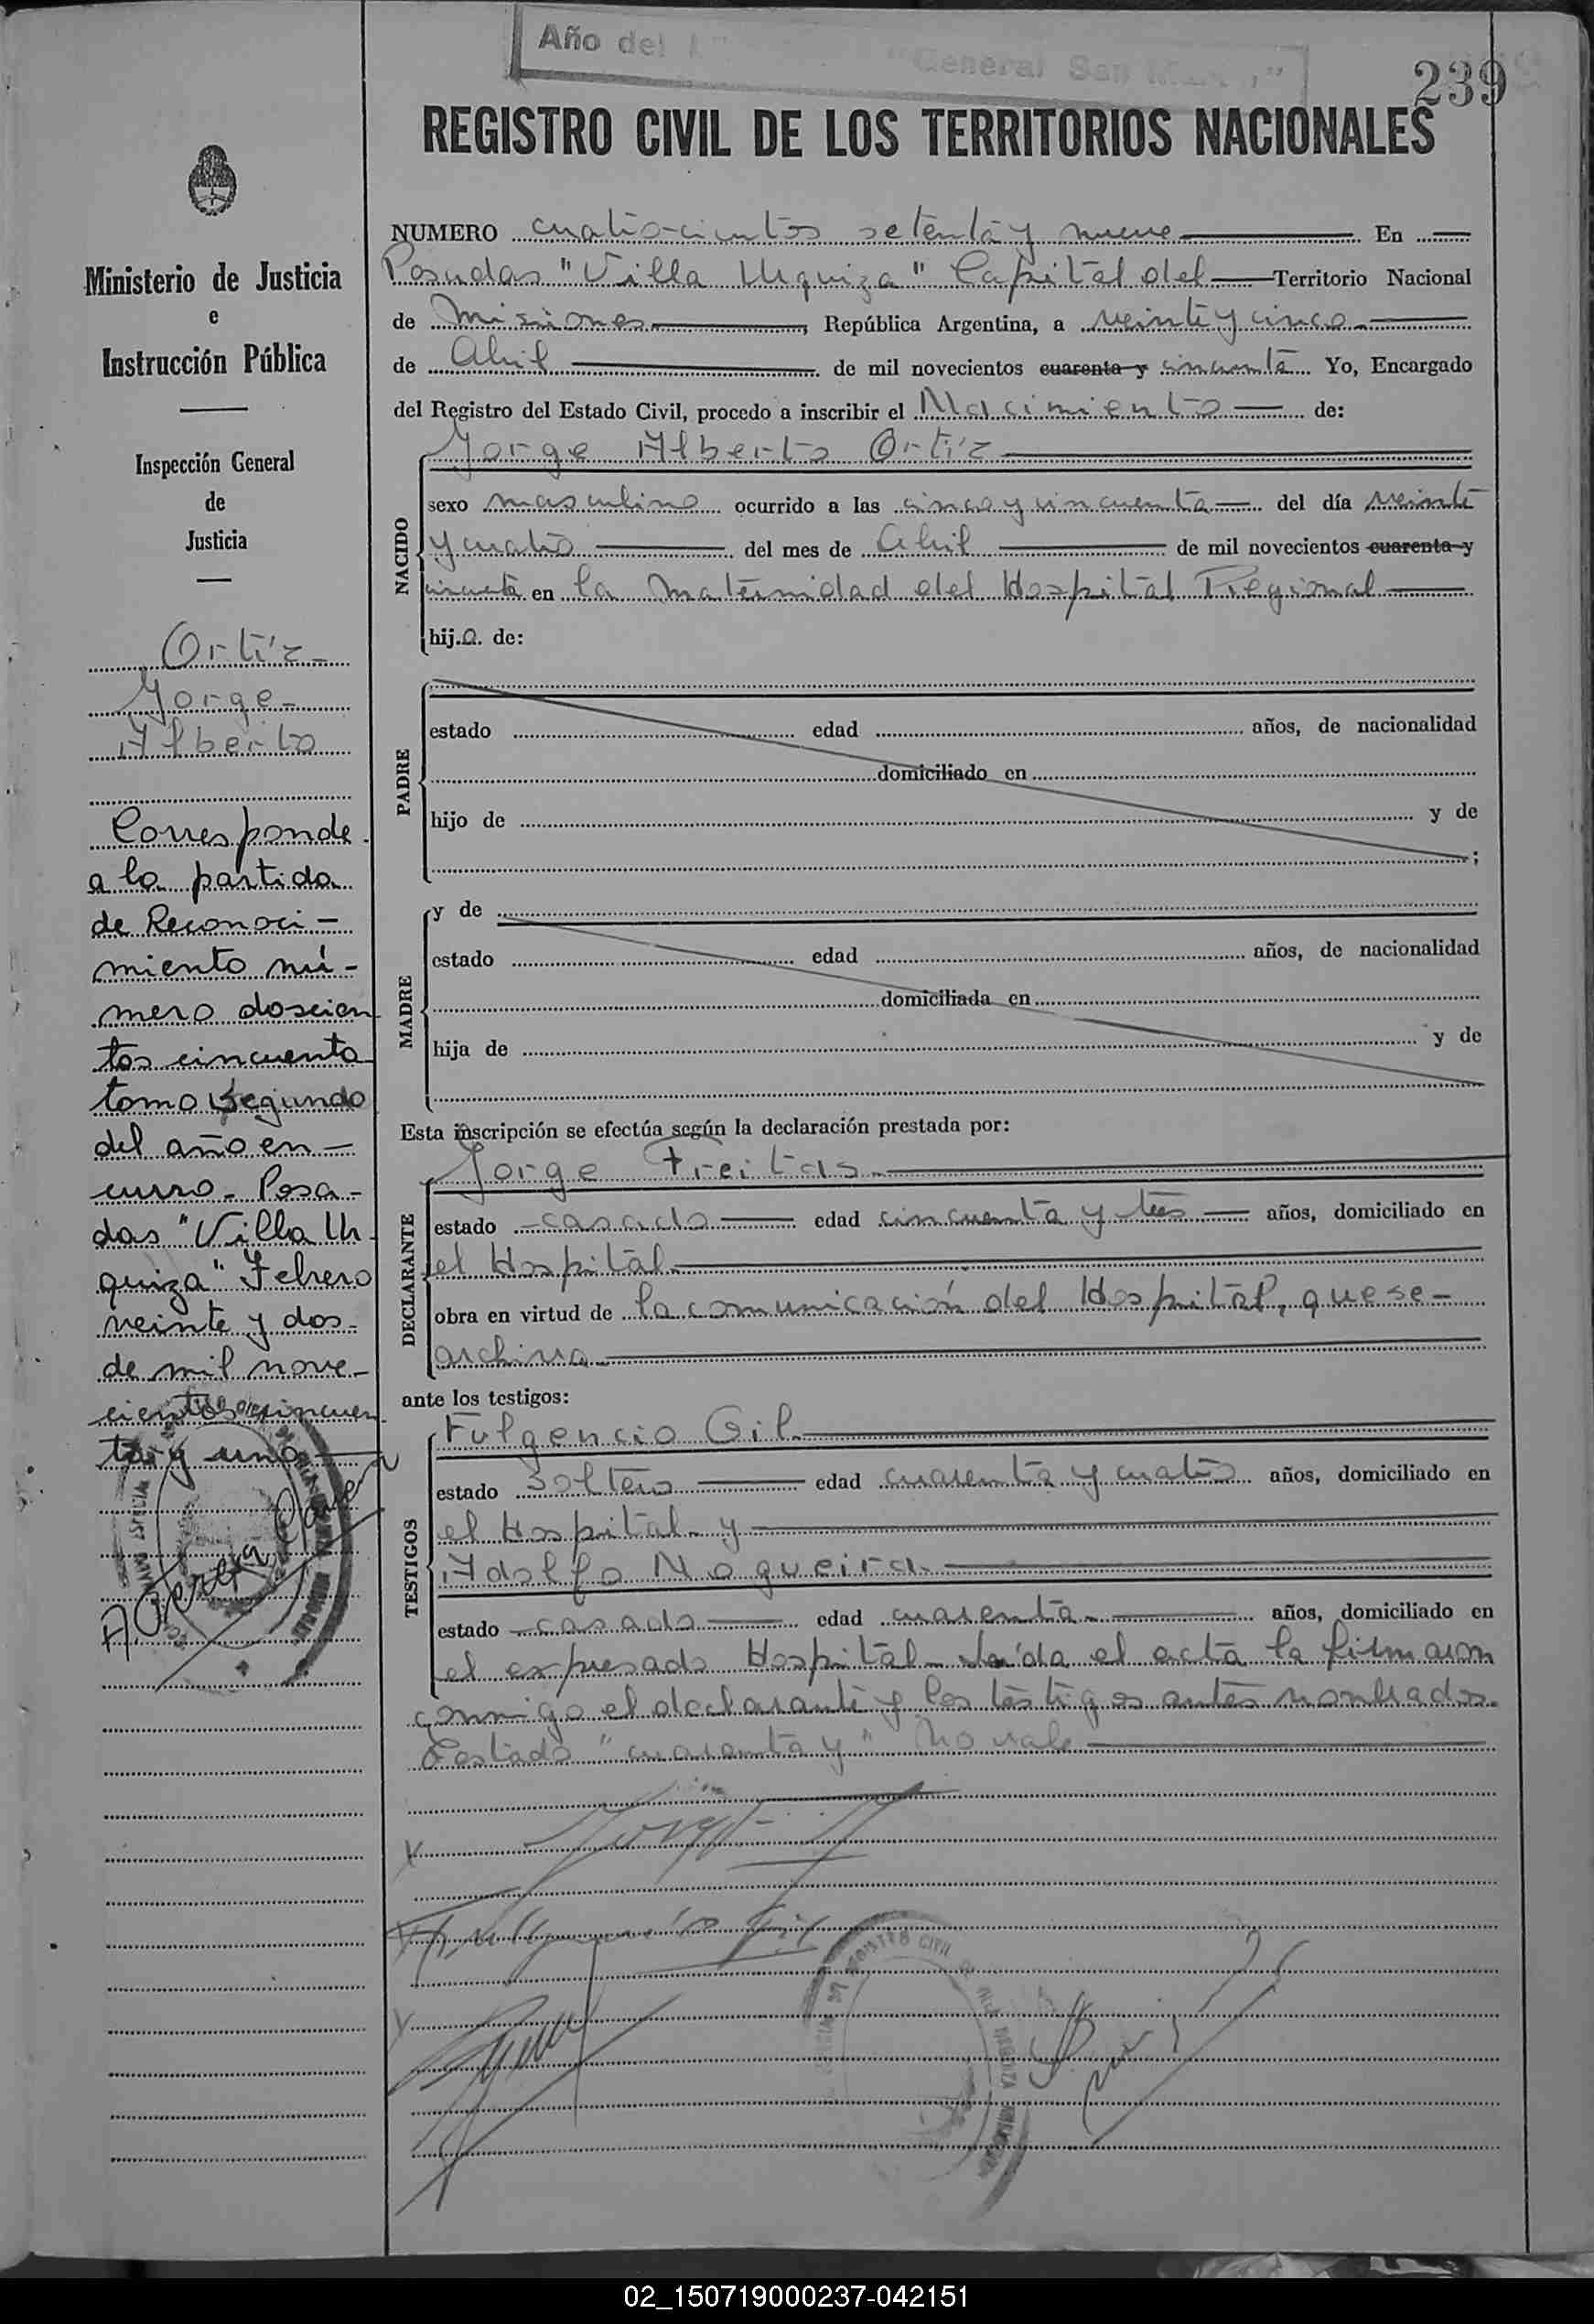 Año del "General San
239
REGISTRO CIVIL DE LOS TERRITORIOS NACIONALES
Ministerio de Justicia
e
Instrucción Pública
Inspección General
de
Justicia
Ortíz
Jorge
Alberto
Corresponde
a la partida
de Reconoci-
miento nú-
mero doscien
tos cincuenta
tomo segundo
del año en
curso. Posa-
das "Villa Ur
quiza" Febrero
veinte y dos
de mil nove-
cientos cincuen
ta y uno
NUMERO cuatrocientos setenta y nueve En
Posadas "Villa Urquiza" Capital del Territorio Nacional
de Misiones, República Argentina, a veinte y cinco
de Abril de mil novecientos cuarenta y cincuenta Yo, Encargado
del Registro del Estado Civil, procedo a inscribir el Nacimiento de:
NACIDO
Jorge Alberto Ortíz
sexo masculino ocurrido a las cinco y cincuenta del día veinte
y cuatro del mes de Abril de mil novecientos cuarenta y
cincuenta en la Maternidad del Hospital Regional
hijo de:
PADRE
estado edad años, de nacionalidad
domiciliado en
hijo de y de
;
MADRE
y de
estado edad años, de nacionalidad
domiciliada en
hija de y de
Esta inscripción se efectúa según la declaración prestada por:
DECLARANTE
Jorge Freitas
estado casado edad cincuenta y tres años, domiciliado en
el Hospital
obra en virtud de la comunicación del Hospital, que se
archiva
ante los testigos:
TESTIGOS
Fulgencio Gil
estado soltero edad cuarenta y cuatro años, domiciliado en
el Hospital y
Adolfo Nogueira
estado casado edad cuarenta años, domiciliado en
el expresado Hospital. Leída el acta la firmaron
conmigo el declarante y los testigos antes nombrados.
Testado "cuarenta y" No vale
02_150719000237-042151